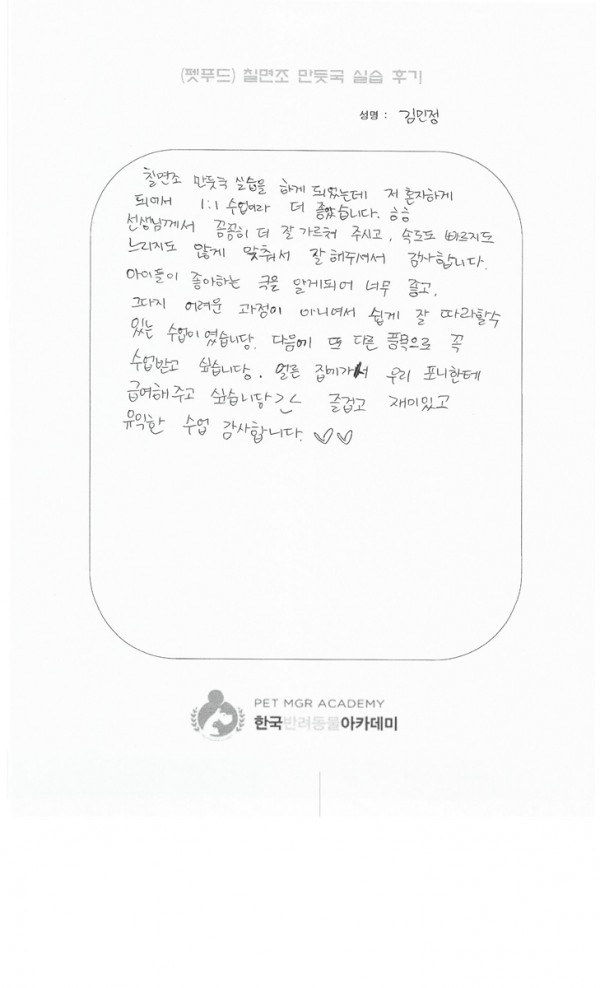 (펫푸드) 칠면조 만듯국 실습 후기
성명 : 김민정
칠면조 만듯국 실습을 하게 되었는데 저 혼자하게
되어서 1:1 수업이라 더 좋았습니다. ㅎㅎ
선생님께서 꼼꼼히 더 잘 가르쳐 주시고, 속도도 빠르지도
느리지도 않게 맞춰서 잘 해주셔서 감사합니다.
아이들이 좋아하는 국을 알게되어 너무 좋고,
그다지 어려운 과정이 아니여서 쉽게 잘 따라할수
있는 수업이였습니당. 다음에 또 다른 품목으로 꼭
수업받고 싶습니당. 얼른 집에가서 우리 포니한테
급여해주고 싶습니당 >< 즐겁고 재미있고
유익한 수업 감사합니다. ♡♡
PET MGR ACADEMY
한국반려동물아카데미